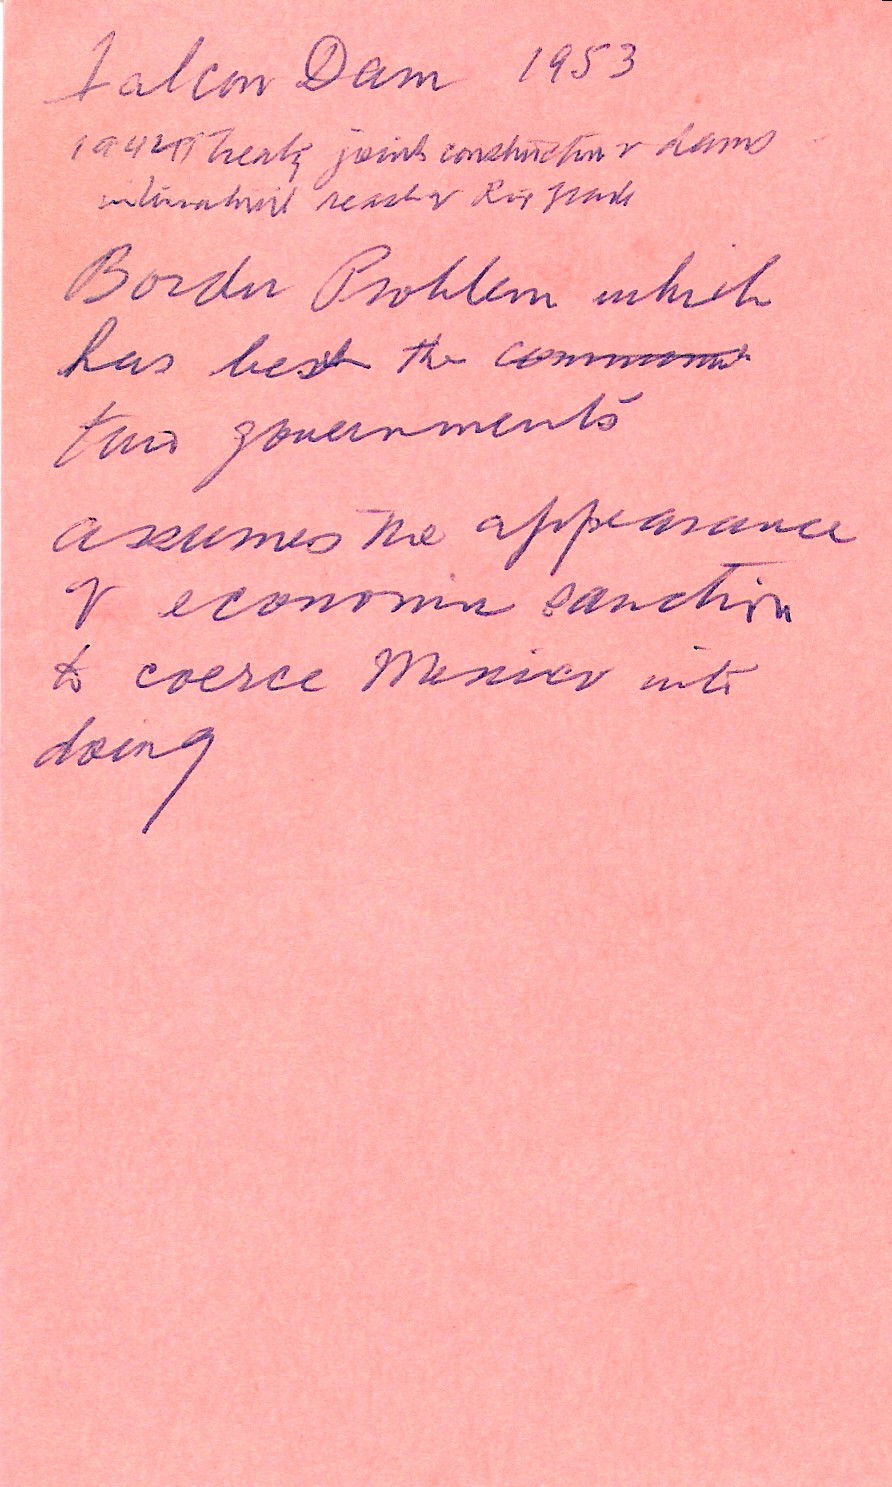 Falcon Dam 1953
1944 Treaty joint construction of dams
international reach of Rio Grande
Border Problem which
has beset the
two governments
assumes the appearance
of economic sanction
to coerce Mexico into
doing